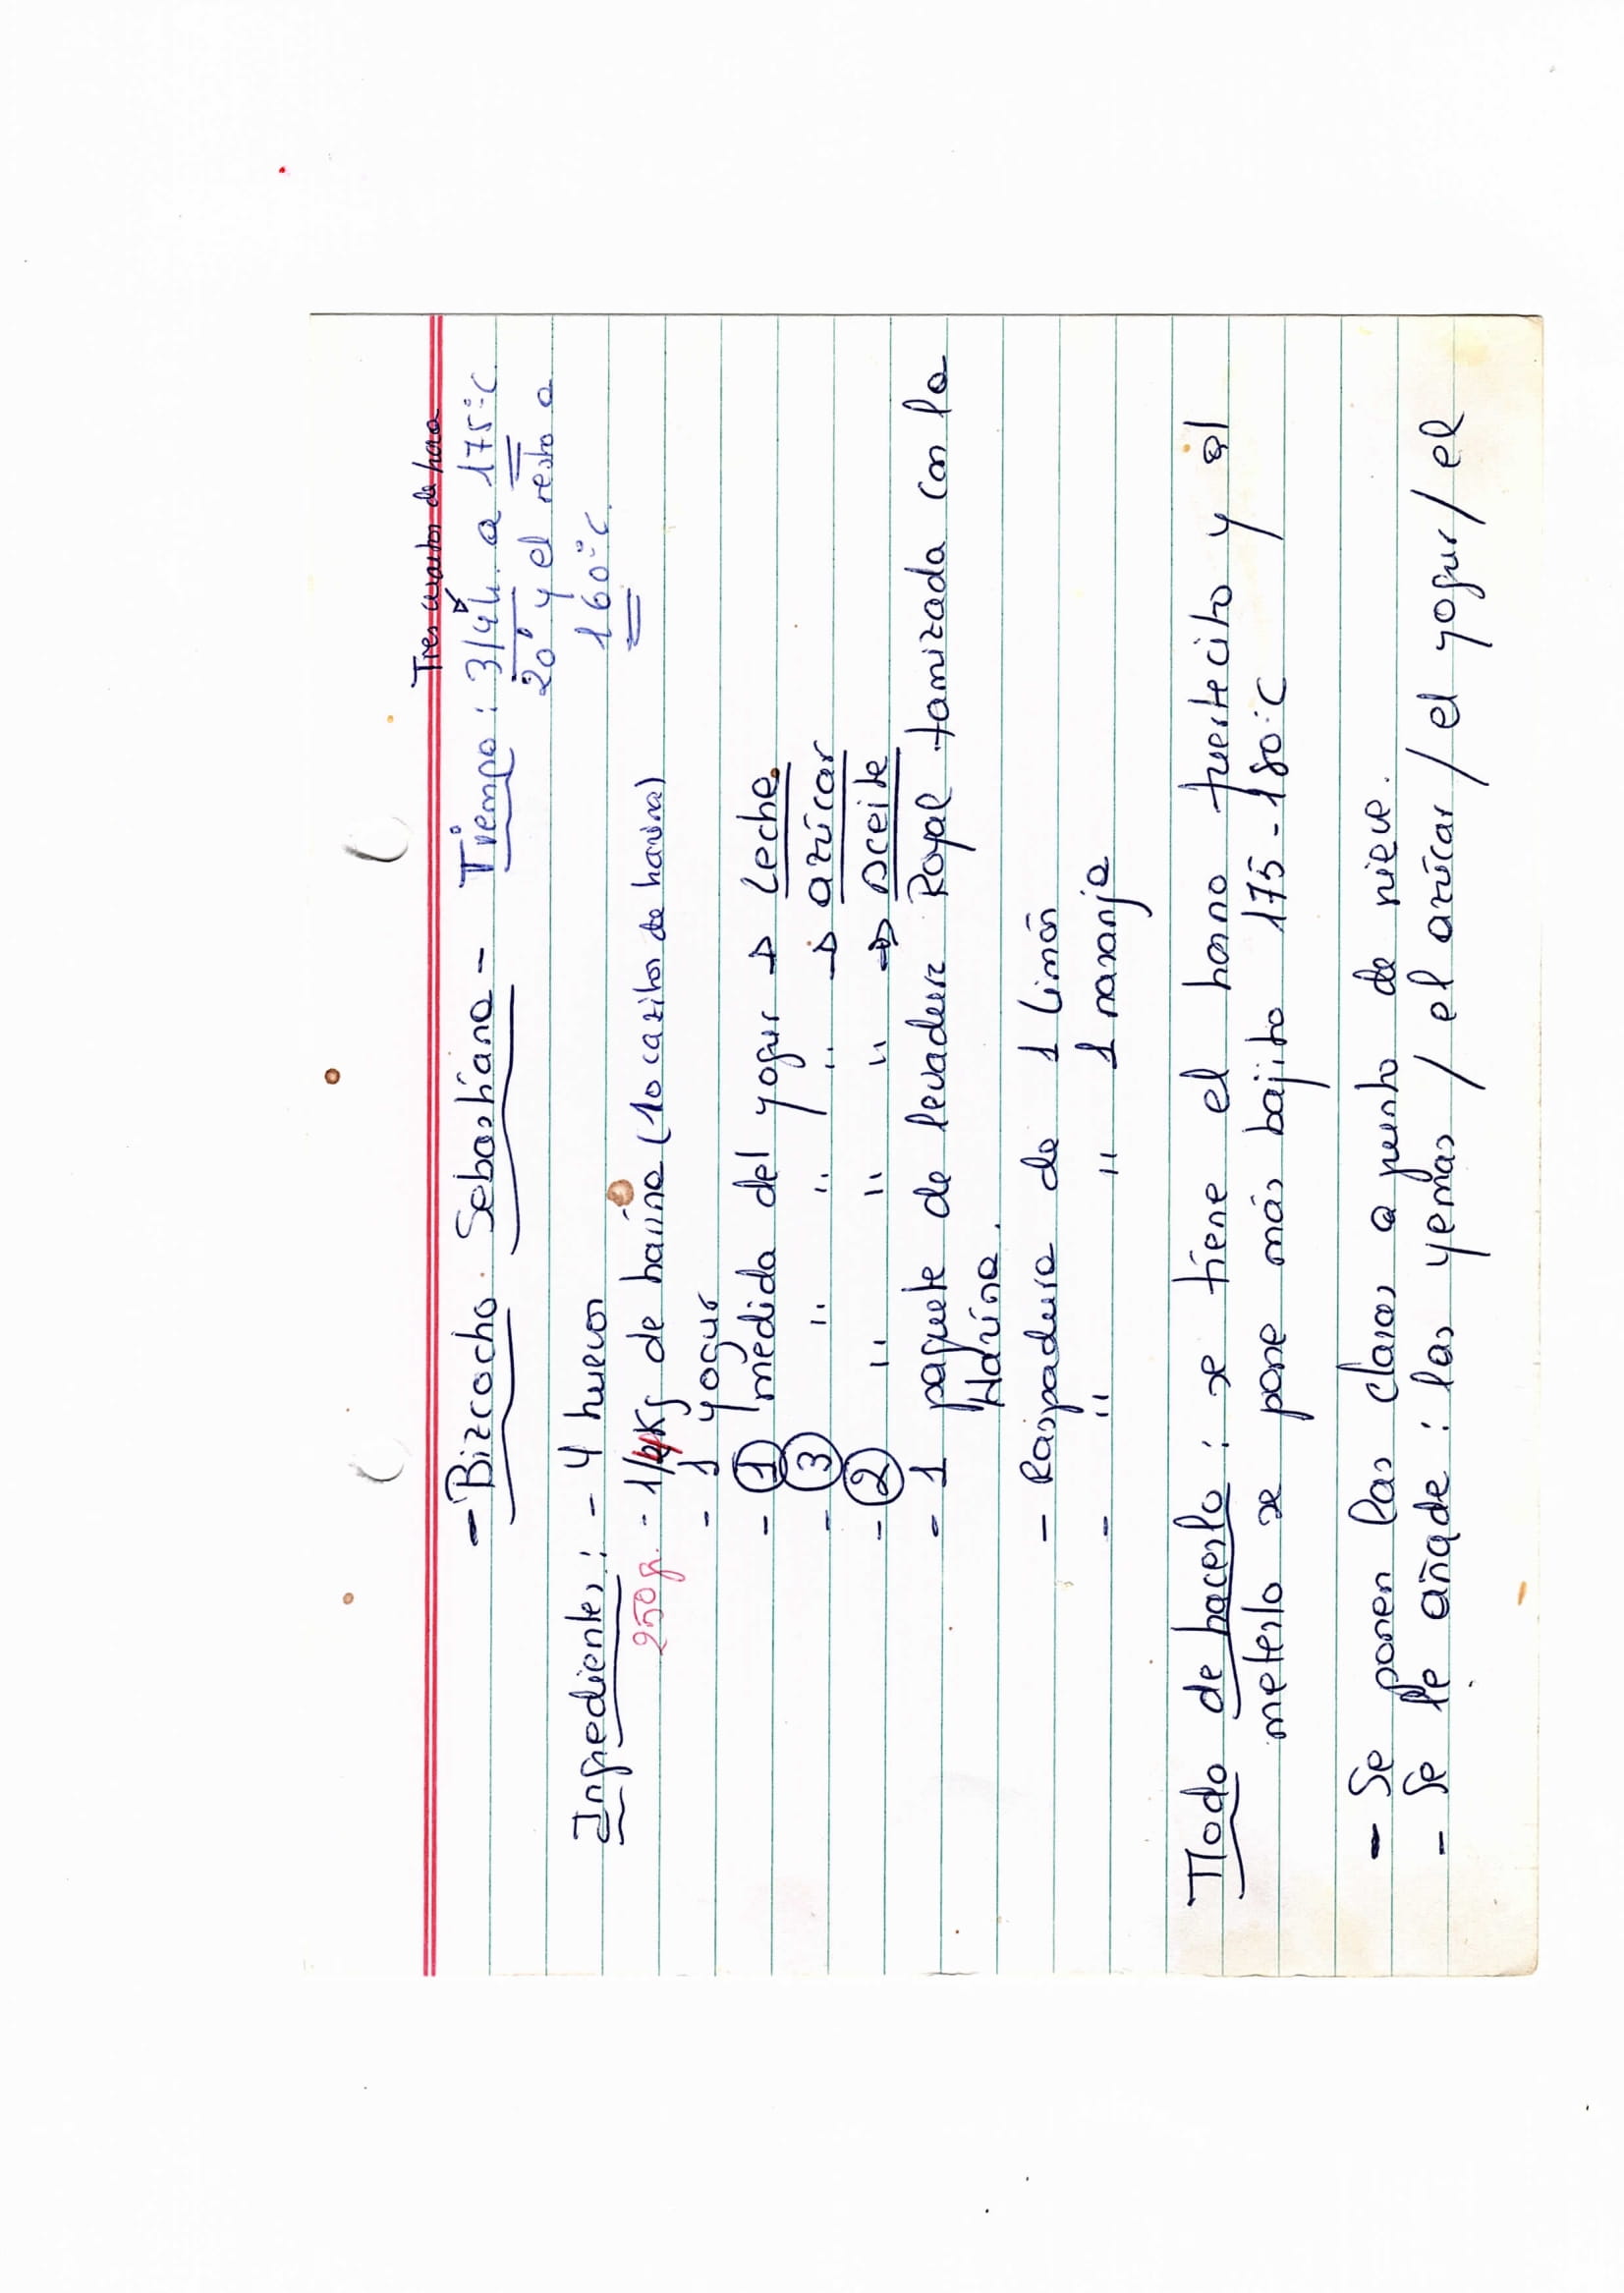 Tres cuartos de hora
- Bizcocho Sebastiana - Tiempo : 3/4 h. a 175ºC
20' y el resto a
160ºC.
Ingredientes : - 4 huevos
250 gr. - 1/4 Kg de harina (10 cazitos de harina)
- 1 yogur
- 1 medida del yogur → Leche
- 3 " " " → azúcar
- 2 " " " → aceite
- 1 paquete de levadura Royal tamizada con la
Harina.
- Raspadura de 1 Limón
- " " 1 naranja
Modo de hacerlo : se tiene el horno fuertecito y al
meterlo se pone más bajito 175 - 180ºC
- Se ponen las claras a punto de nieve.
- Se le añade : las yemas / el azúcar / el yogur / el